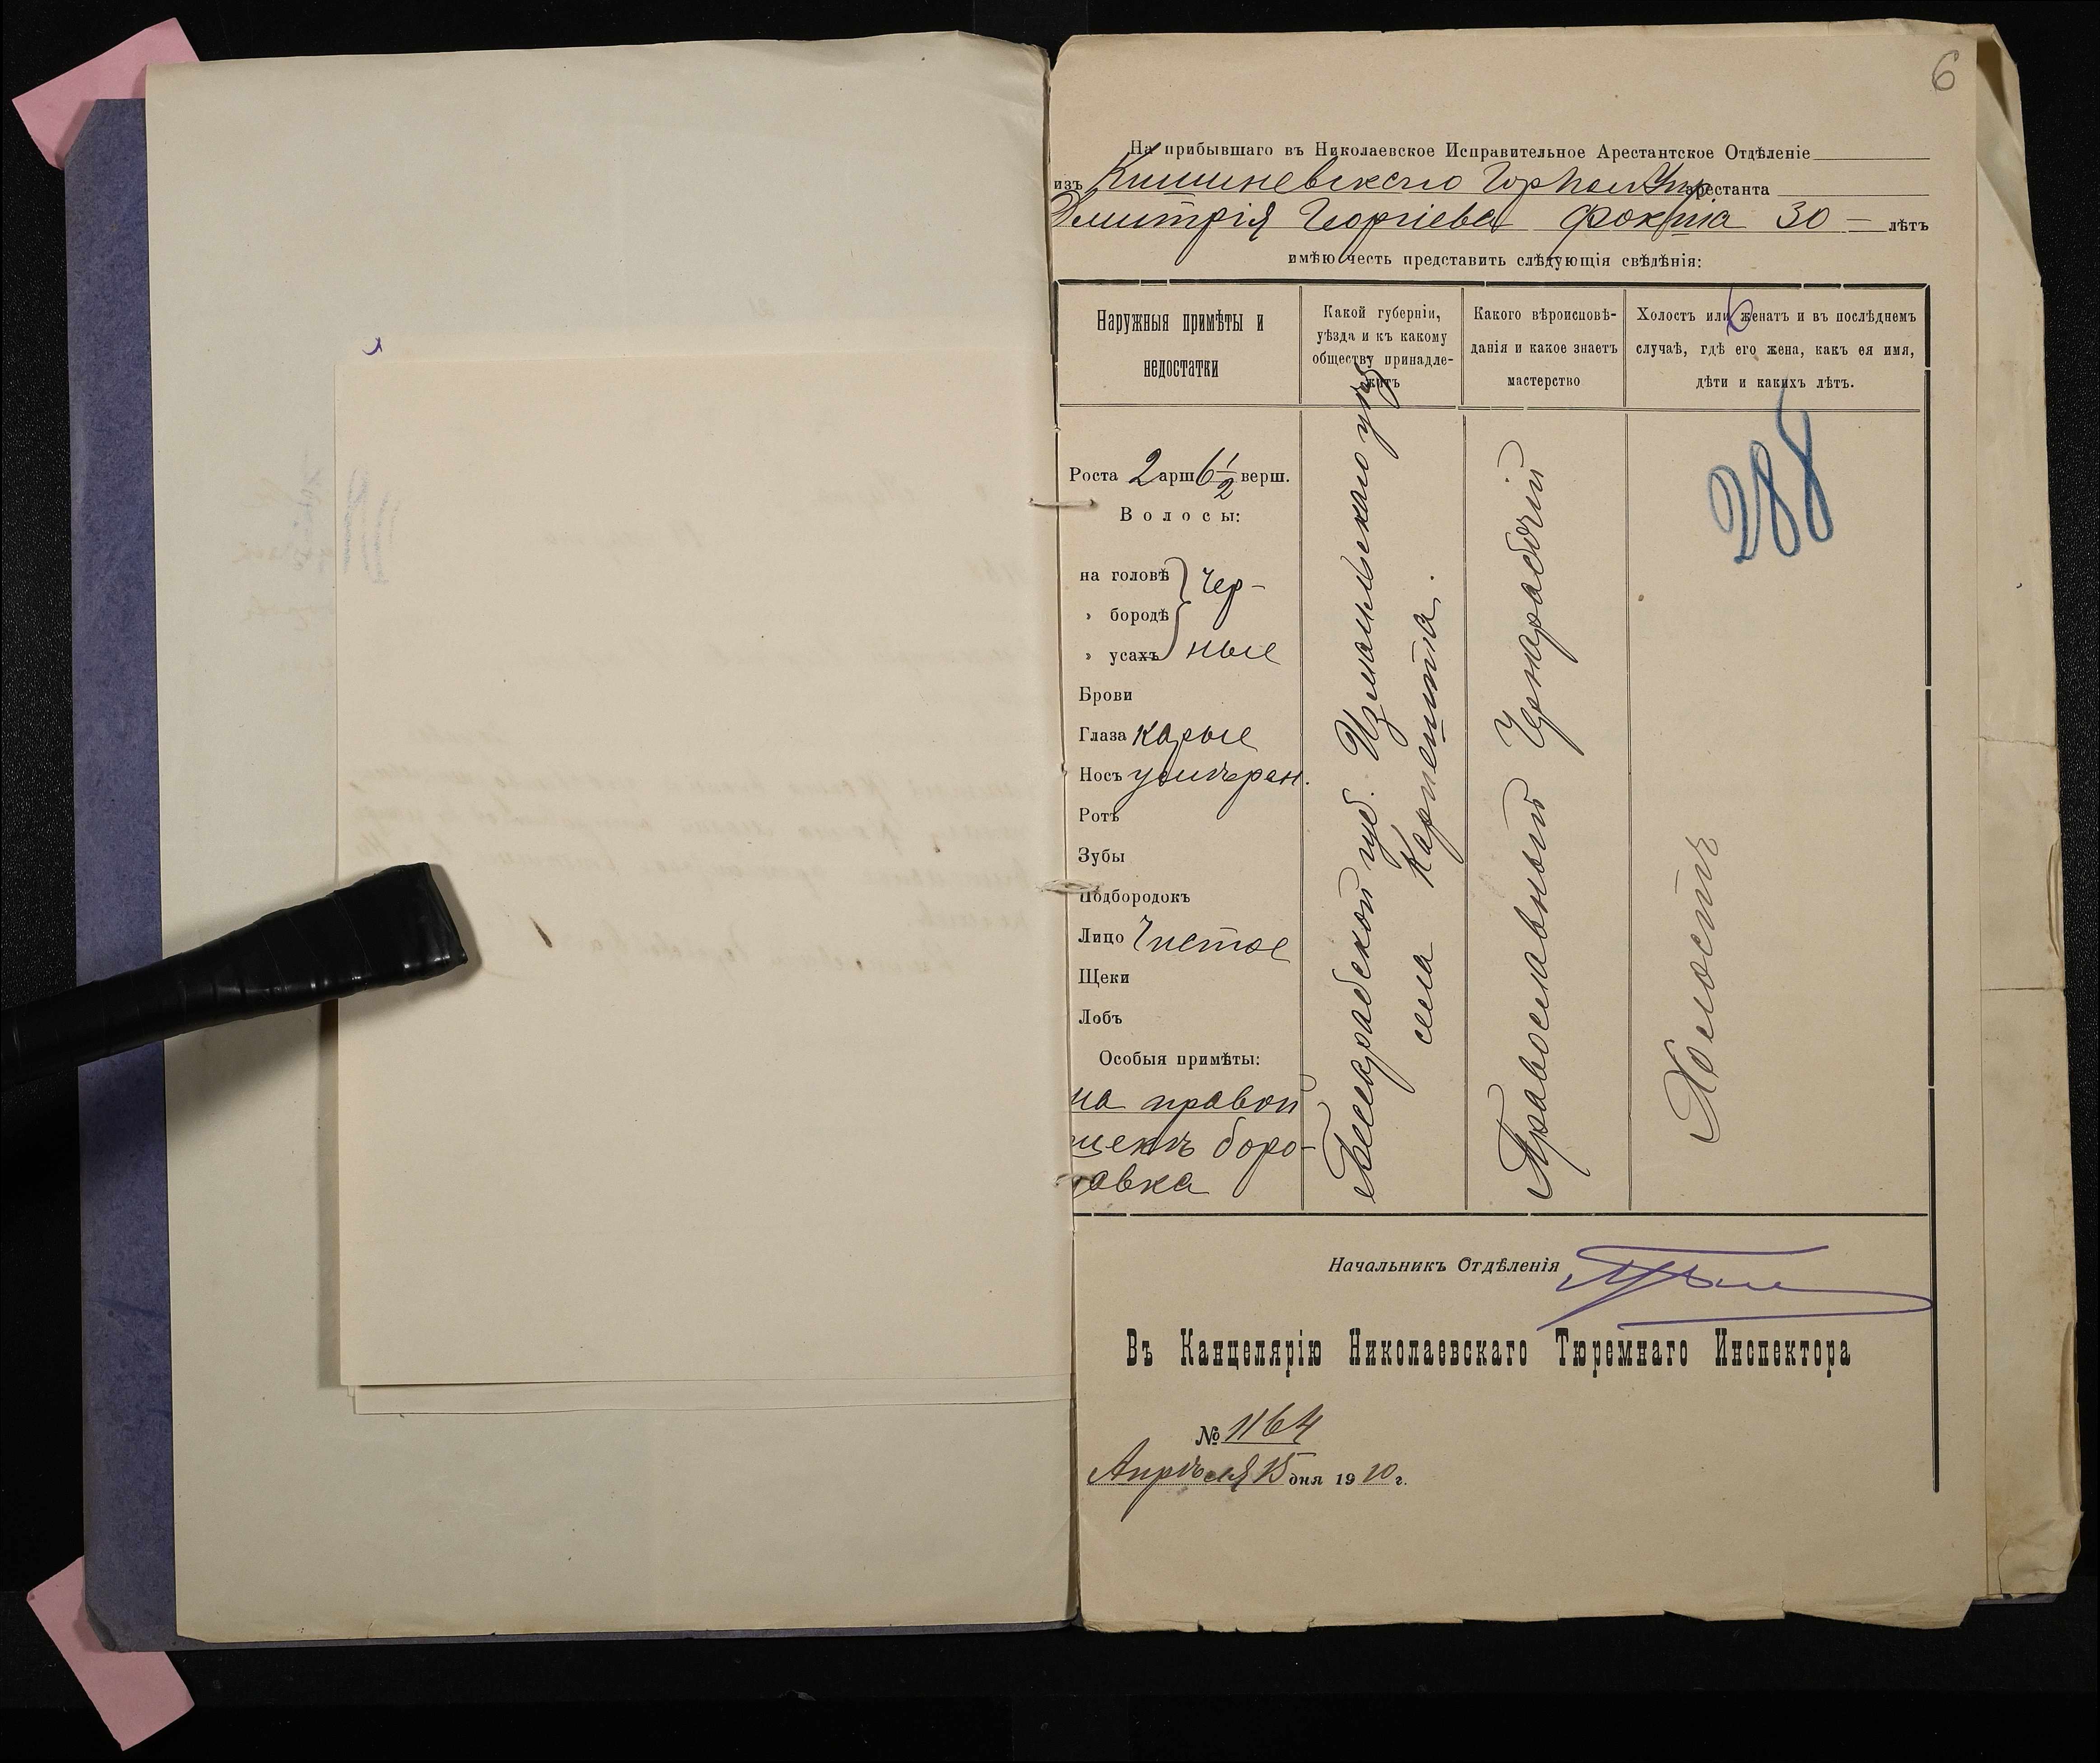 6
На прибывшаго въ Николаевское Исправительное Арестантское Отдѣленіе
изъ Кишиневского Гор Пол Упр арестанта
Дмитрія Георгіева Фокша 30 — лѣтъ
имѣю честь представить слѣдующія свѣдѣнія:
Наружныя примѣты и
недостатки
Какой губерніи,
уѣзда и къ какому
обществу принадле-
житъ
Какого вѣроисповѣ-
данія и какое знаетъ
мастерство
Холостъ или женатъ и въ послѣднемъ
случаѣ, гдѣ его жена, какъ ея имя,
дѣти и какихъ лѣтъ.
Роста 2 арш 6 1/2 верш.
Волосы:
на головѣ чер-
» бородѣ
» усахъ ные
Брови
Глаза карые
Носъ умѣрен.
Ротъ
Зубы
Подбородокъ
Лицо Чистое
Щеки
Лобъ
Особыя примѣты:
на правой
щекѣ боро-
давка
Бессарабской губ. Измаильскаго уѣз
села Карпешта.
Православный Чернорабочій
288
Холостъ
Начальникъ Отдѣленія
Въ Канцелярію Николаевскаго Тюремнаго Инспектора
№ 1164
Апрѣля 15 дня 1910 г.